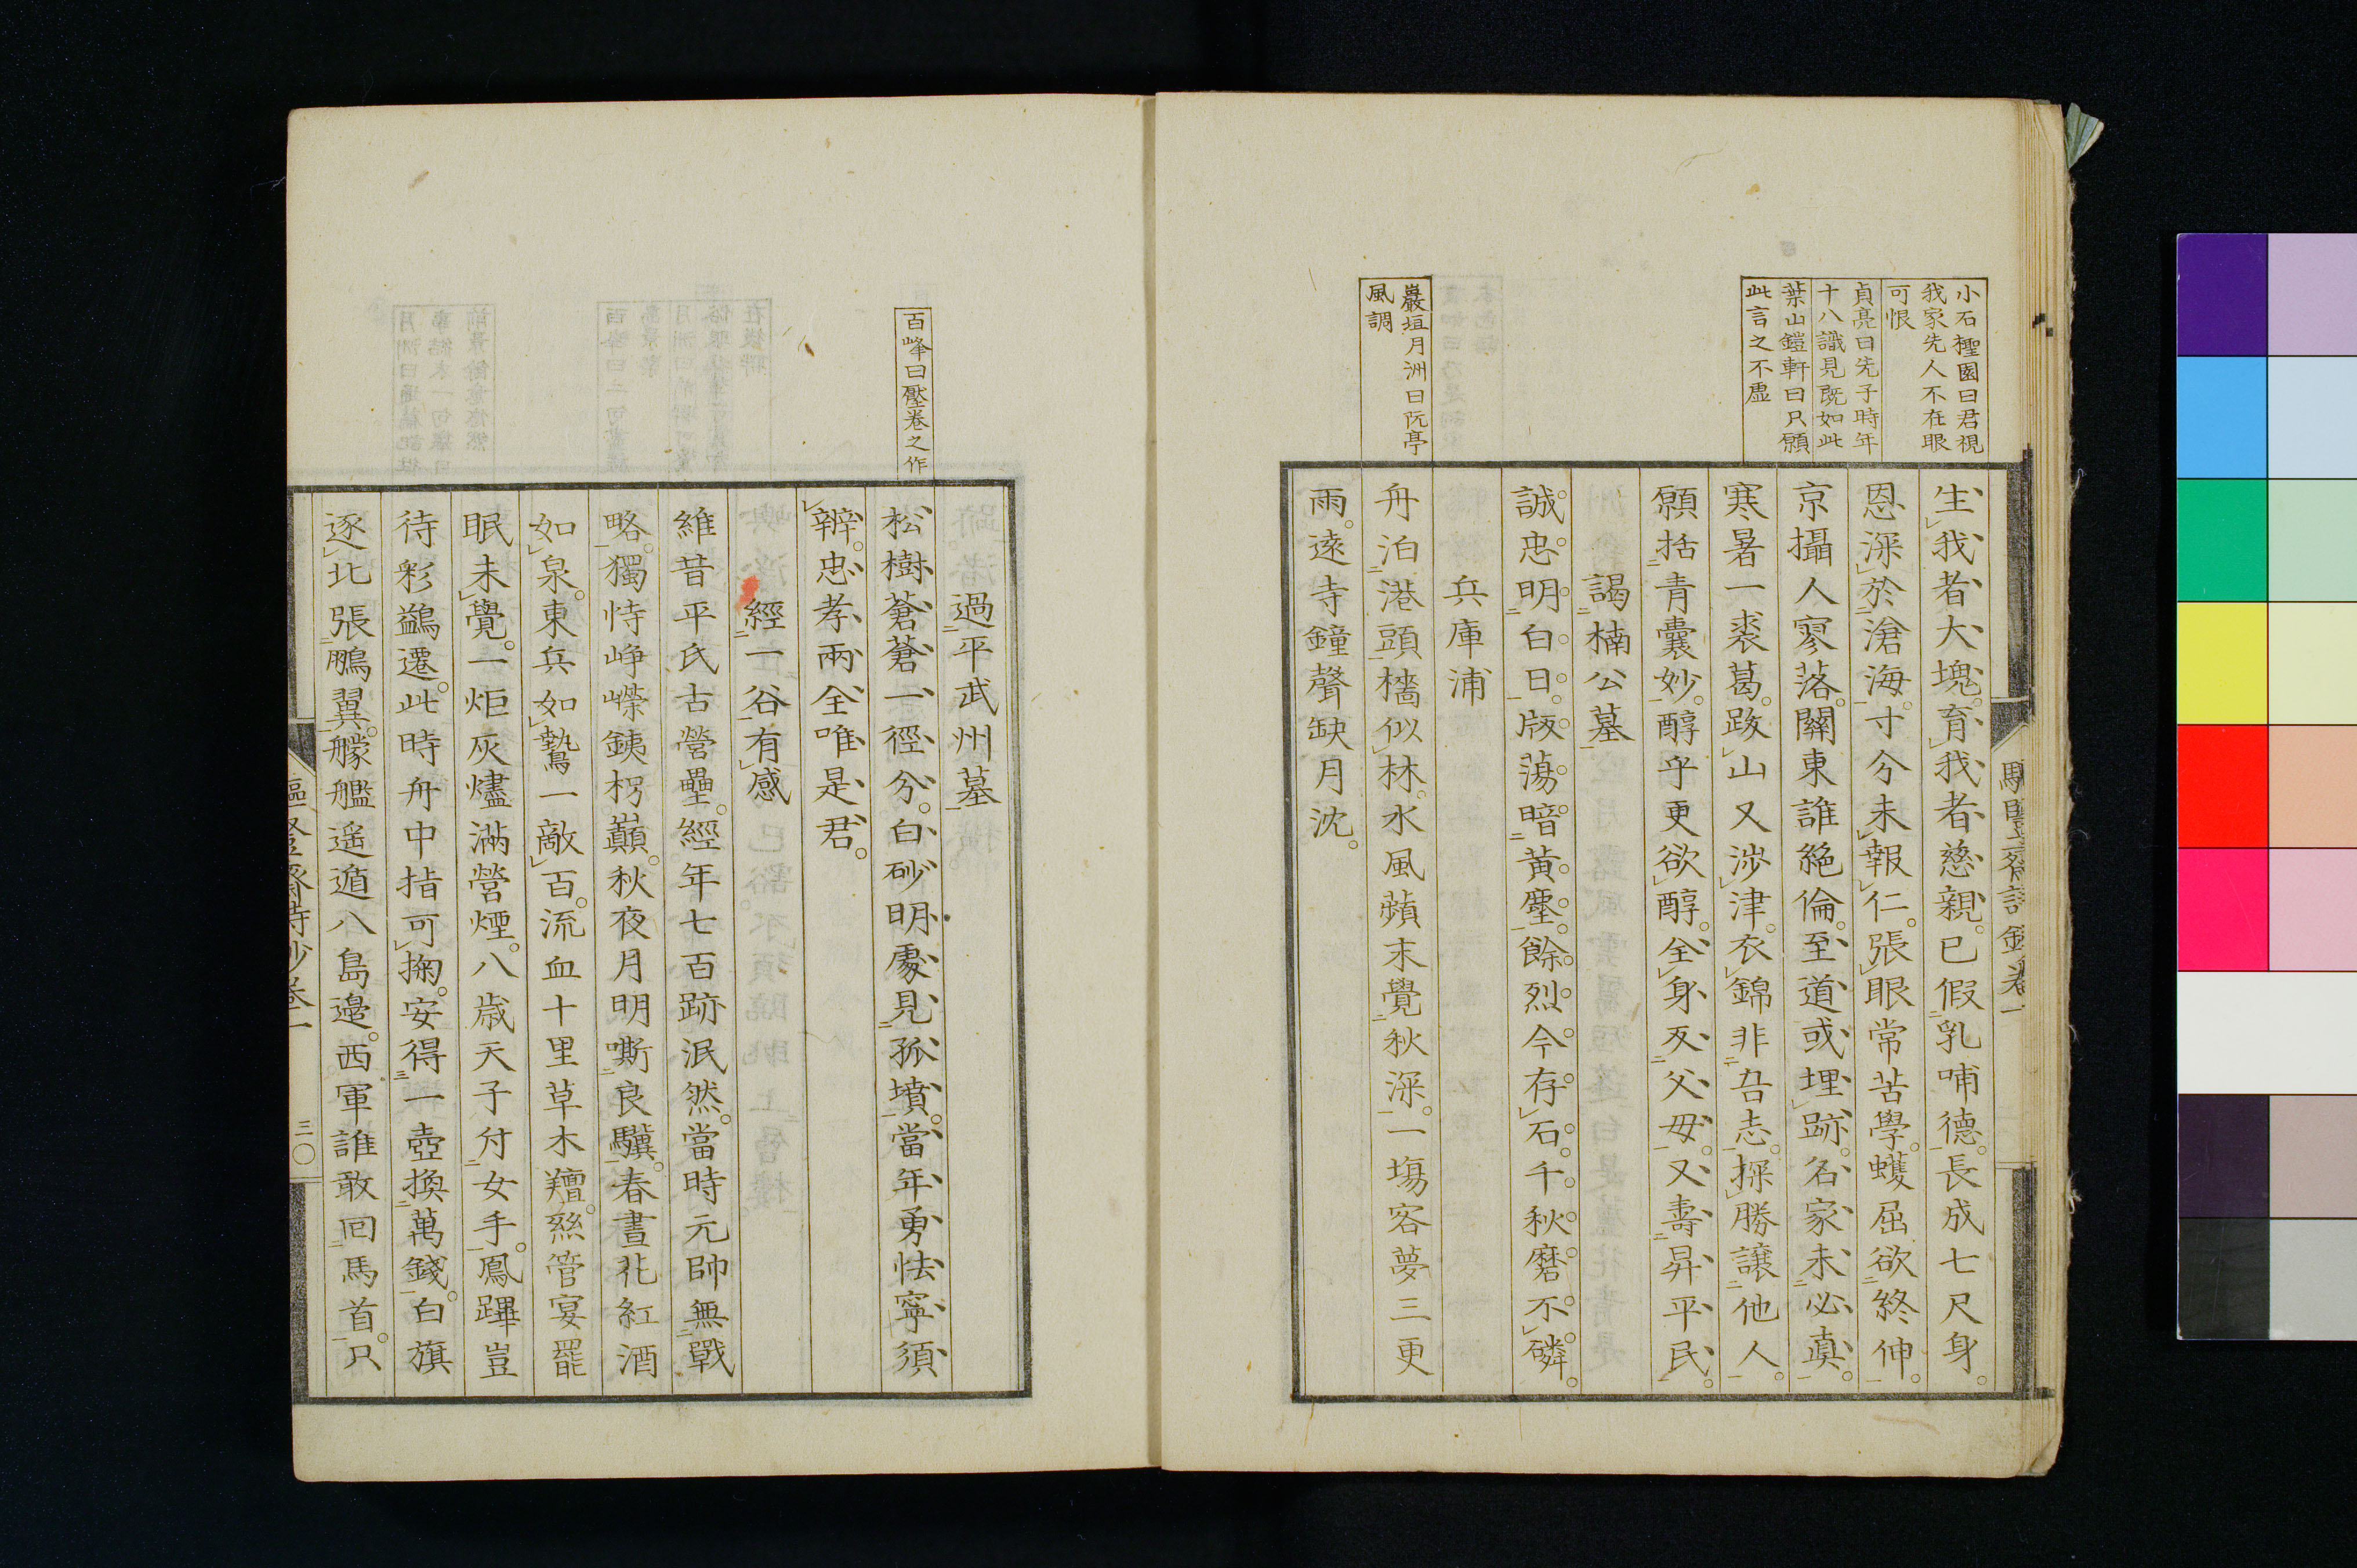 小石檉園曰君視
我家先人不在眼
可恨
貞亮曰先子時年
十八識見既如此
葉山鎧軒曰只願
此言之不虛
巖垣月洲曰阮亭
風調
生我者大塊。育我者慈親。已假乳哺德。長成七尺身。
恩深於滄海。寸分未報仁。張眼常苦學。蠖屈欲終伸。
京攝人寥落。關東誰絶倫。至道或埋跡。名家未必真。
寒暑一裘葛。跋山又涉津。衣錦非吾志。探勝讓他人。
願括青囊妙。醇乎更欲醇。全身及父母。又壽昇平民。
謁楠公墓
誠忠明白日。版蕩暗黃塵。餘烈今存石。千秋磨不磷。
兵庫浦
舟泊港頭檣似林。水風蘋末覺秋深。一場客夢三更
雨。遠寺鐘聲缺月沈。
百峰曰壓卷之作
過平武州墓
松樹蒼蒼一徑分。白砂明處見孤墳。當年勇怯寧須
辨。忠孝兩全唯是君。
經一谷有感
維昔平氏古營壘。經年七百跡泯然。當時元帥無戰
略。獨恃崢嶸鐵枴巔。秋夜月明嘶良驥。春晝花紅酒
如泉。東兵如鷙一敵百。流血十里草木羶。絲管宴罷
眠未覺。一炬灰燼滿營煙。八歲天子付女手。鳳蹕豈
待彩鷁遷。此時舟中指可掬。安得一壺換萬錢。白旗
逐北張鵬翼。艨艦遙遁八島邊。西軍誰敢回馬首。只
三〇